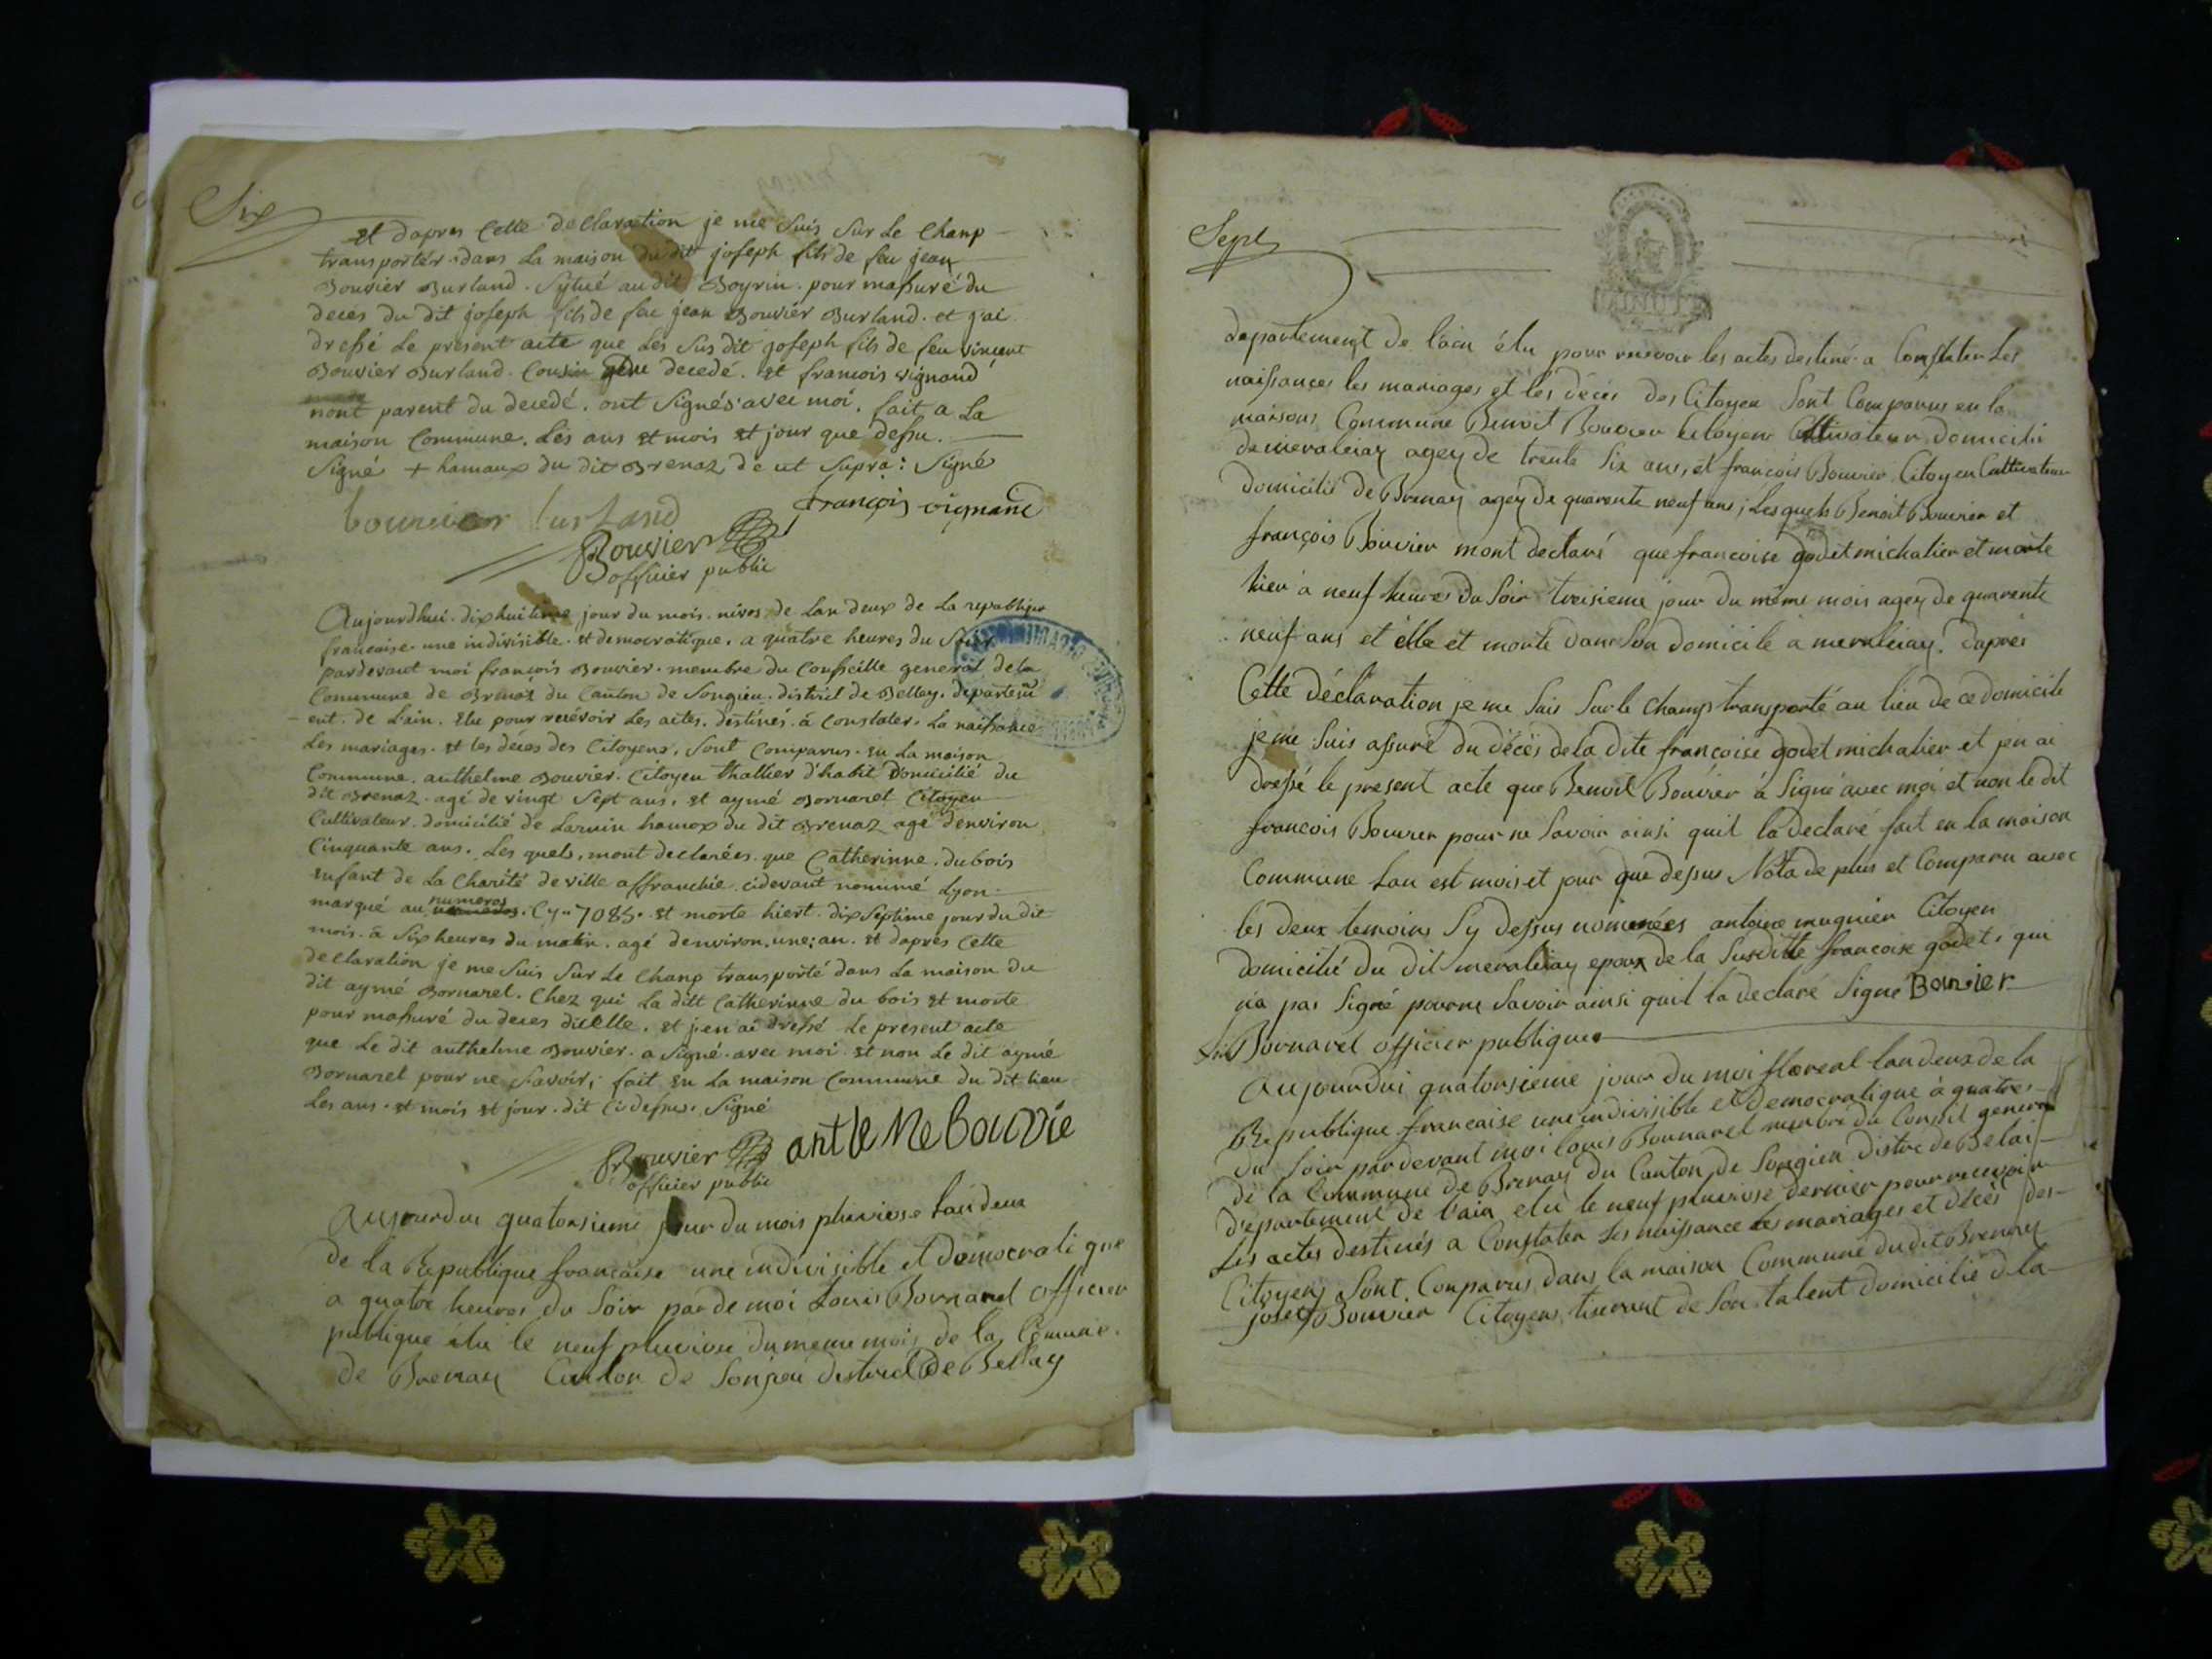 Six
et dapres cette declaration je me suis sur le champ
transportér dans la maison du dit joseph fils de feu jean
Bouvier Burland. sytué au dit Boyrin. pour massuré du
deces du dit joseph fils de feu jean Bouviér Burland. et j'ai
dressé le présent acte que les sus dit joseph fils de feu vincent
Bouvier Burland. Cousin decedé. et francois vignand
nont parent du decedé. ont signés avec moi. fait a la
maison Commune. les ans et mois et jour que dessu.
signé + hamaux du dit Brenaz de ut supra: signé
françois vignand
bouvier burland
Bouvier
officier public
Aujourdhui. dixhuitime jour du mois. nivos de lan deux de la republique
francaise. une indivisible. et democratique. a quatre heures du soir
pardevant moi françois Bouvier. membre du Consseille general de la
Commune de Brenaz du Canton de Songieu. district de Belley. departem
- ent. de l'ain. élu pour recévoir les actes. destinés. à constater. la naissance
les mariages. et les déces des Citoyens. sont Comparus. en la maison
Commune. anthelme Bouvier. Citoyen thallier d'habit domicilié du
dit Brenaz. agé de vingt sept ans. et aymé Bornarel Citoyen
Cultivateur. domicilié de Laruin hamox du dit Brenaz agé d'environ
Cinquante ans. les quels. mont declarées. que Catherinne. dubois
enfant de la Charité de ville affranchie. cidevant nommé Lyon
marqué au numeros. Cy. 7085. et morte hiert. dix septime jour du dit
mois. à six heures du matin. agé denviron. une; an. et daprès cette
declaration je me suis sur le champ transporté dans la maison du
dit aymé Bornarel. Chez qui la ditt Catherinne du bois et morte
pour massuré du deces dicelle. et j'en ai dressé le present acte
que le dit anthelme Bouvier. a signé. avec moi. et non le dit aymé
Bornarel pour ne savoir; fait en la maison Commune du dit lieu
les ans. et mois et jour. dit ci dessus. signé
Bouvier antleMe bouvie
officier public
Aujourdui quatorsieme jour du mois pluviose lan deux
de la Republique francaise une indivisible et democratique
a quatre heures du soir par de moi Louis Bornarel officier
publique élu le neuf pluviose du meme mois de la Comune.
de Brenay Canton de Sonjeu district de Bellay
Sept
departement de l'ain élu pour recevoir les actes destiné a Constater les
naissances les mariages et les déces des Citoyen sont Comparus en la
maisons Commune Benoit Bouvier Citoyens Cultivateur domicilié
de meraleiay agey de trente six ans, et francois Bouvier Citoyen Cultivateur
domicilié de Brenay agey de quarente neuf ans; lesquels Benoit Bouvier et
françois Bouvier mont declaré que francoise godet michalier et morte
hier a neuf heures du soir treisieme jour du même mois agey de quarente
neuf ans et elle et morte dans son domicile a meraleiay. dapres
Cette déclaration je me suis sur le champs transporté au lieu de ce domicile
je me suis assuré du déces de la dite françoise godet michalier et j'en ai
dressé le present acte que Benoit Bouvier à signé avec moi et non le dit
francois Bouvier pour ne savoir ainsi quil la declaré fait en la maison
Commune lan est mois et jour que dessus Nota de plus et Comparu avec
les deux temoins sy dessus nommées antoine mugnier Citoyen
domicilié du dit meraleiay epoux de la susditte francoise godet, qui
n'a pas signé pour ne savoir ainsi quil la declaré signé Bouvier
Bornarel officier publique
Aujourdui quatorsieme jour du moi floreal lan deux de la
Republique francaise une indivisible et democratique à quatres
du soir pardevant moi louis Bournarel membre du Conseil general
de la Commune de Brenay du Canton de Songieu distric de Belai
departement de l'ain elu le neuf pluviose dernier pour recevoir
les actes destinés a Constater les naissance les mariages et déces des
Citoyens sont Comparus dans la maison Commune du dit Brenay
josep Bouvier Citoyens vivant de son talent domicilié de la